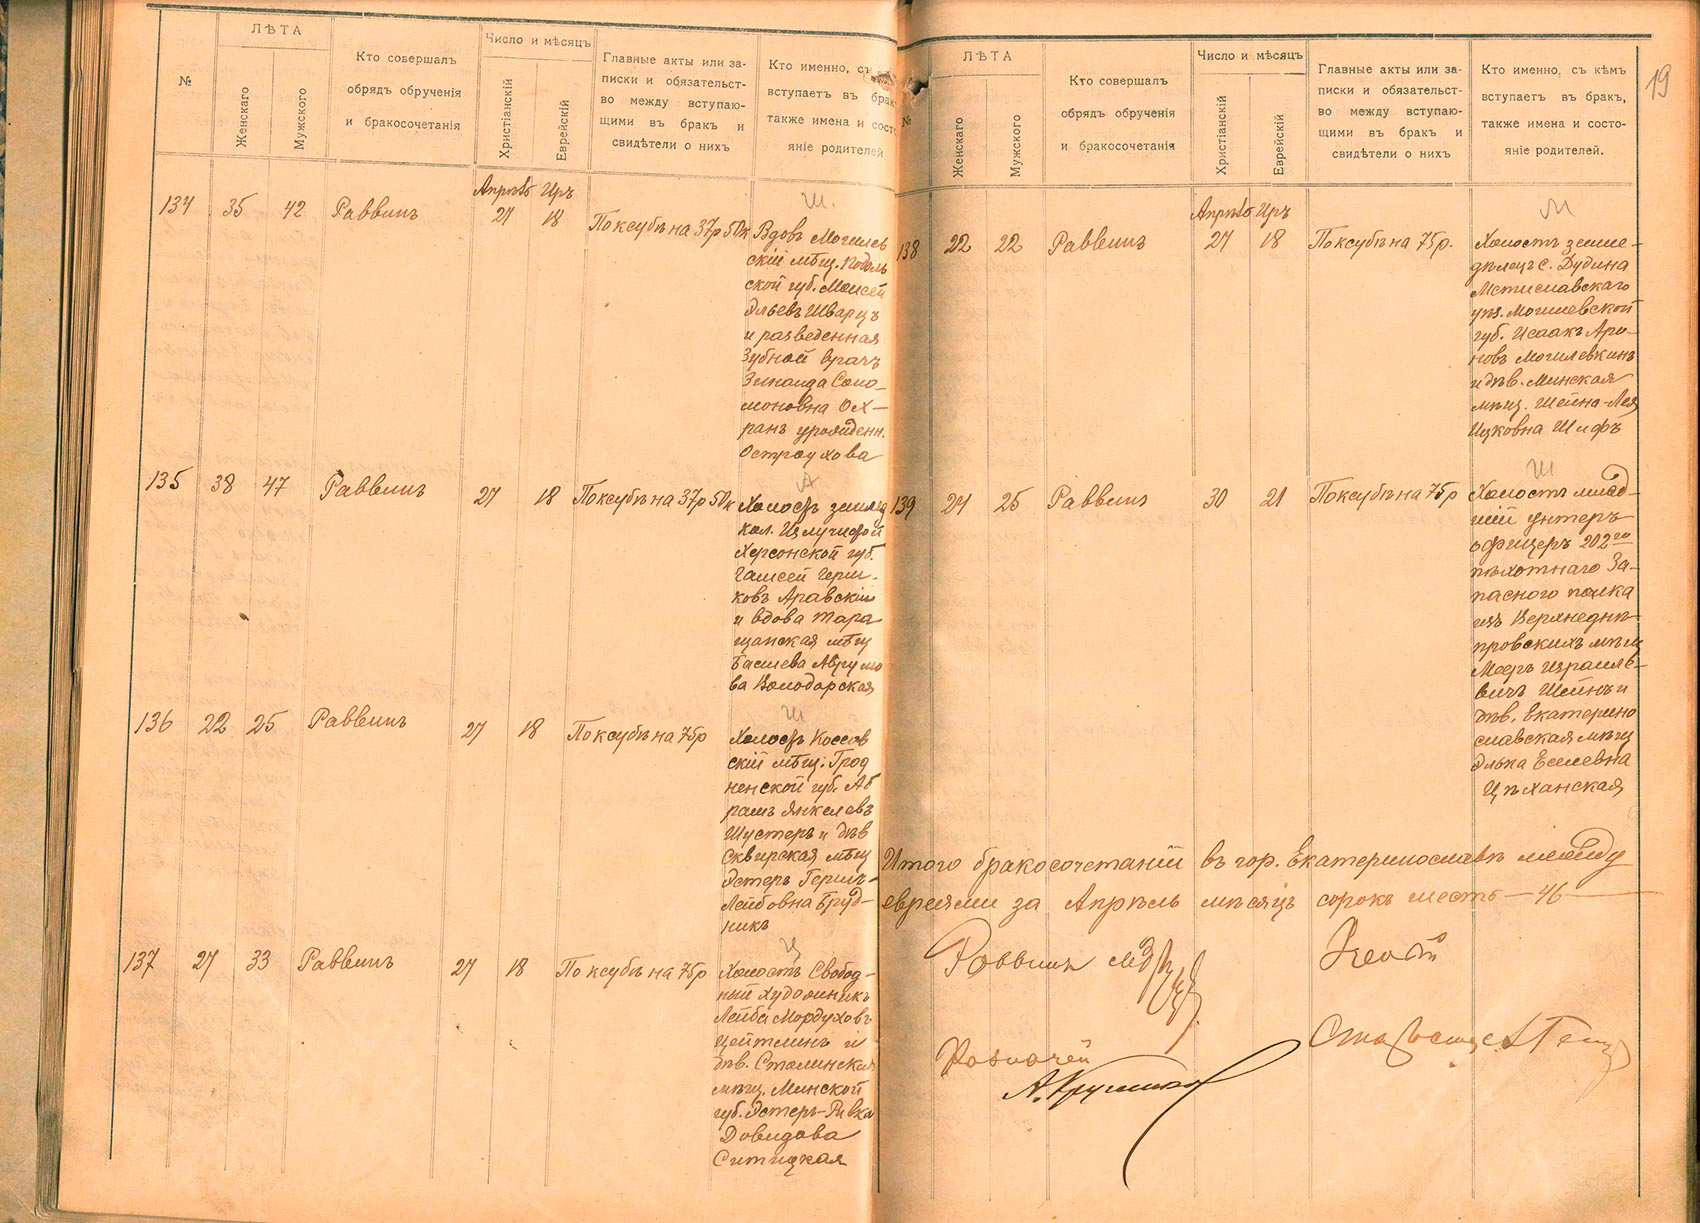 №
ЛѢТА
Женскаго
Мужского
Кто совершалъ
обрядъ обрученія
и бракосочетанія
Число и мѣсяцъ
Христіанскій
Еврейскій
Главные акты или за-
писки и обязательст-
во между вступаю-
щими въ бракъ и
свидѣтели о нихъ
Кто именно, съ
вступаетъ въ брак
также имена и состо
яніе родителей
Апрѣль Иръ
Ш.
134 35 42 Раввинъ 27 18 По ксубѣ на 37р 50к Вдовъ Могилев
скій мѣщ. Подоль
ской губ. Моисей
Эльевъ Шварцъ
и разведенная
Зубной врачъ
Зинаида Соло-
моновна Ох-
ранъ урожденн.
Остроухова
А
135 38 47 Раввинъ 27 18 По ксубѣ на 37р 50к Холостъ землед
кол. Излучистой
Херсонской губ.
Герш-
ковъ Аравскій
и вдова Тара
щанская мѣщ
Басшева Абрумо
ва Володарская
Ш
136 22 25 Раввинъ 27 18 По ксубѣ на 75р Холостъ Коссов
скій мѣщ. Грод
ненской губ. Аб
рамъ Янкелевъ
Шустеръ и дѣв
Сквирская мѣщ
Эстеръ Гершъ-
Лейбовна Бруд-
никъ
Ц
137 27 33 Раввинъ 27 18 По ксубѣ на 75р Холостъ Свобод-
ный художникъ
Лейба Мордуховъ
Цейтлинъ и
дѣв. Столинская
мѣщ. Минской
губ. Эстеръ-Ривка
Довидова
Ситницкая
19
№
ЛѢТА
Женскаго
Мужского
Кто совершалъ
обрядъ обрученія
и бракосочетанія
Число и мѣсяцъ
Христіанскій
Еврейскій
Главные акты или за-
писки и обязательст-
во между вступаю-
щими въ бракъ и
свидѣтели о нихъ
Кто именно, съ кѣмъ
вступаетъ въ бракъ,
также имена и состо-
яніе родителей.
Апрѣль Иръ
М
138 22 22 Раввинъ 27 18 По ксубѣ на 75р. Холостъ земле-
дѣлецъ с. Дудина
Мстиславскаго
уѣз. Могилевской
губ. Исаакъ Аро-
новъ Могилевкинъ
и дѣв. Минская
мѣщ. Шейна-Лея
Ицковна Шифъ
Ш
139 24 25 Раввинъ 30 21 По ксубѣ на 75р Холостъ млад-
шій унтеръ
офицеръ 202го
пѣхотнаго За-
пасного полка
изъ Верхнеднѣ-
провскихъ мѣщ
Мееръ Израиле-
вичъ Шейнъ и
дѣв. Екатерино
славская мѣщ
Элька Еселевна
Цѣханская
Итого бракосочетаній въ гор. Екатеринославѣ между
евреями за Апрѣль мѣсяцъ сорокъ шесть — 46 —
Раввинъ
Староста
Казначей